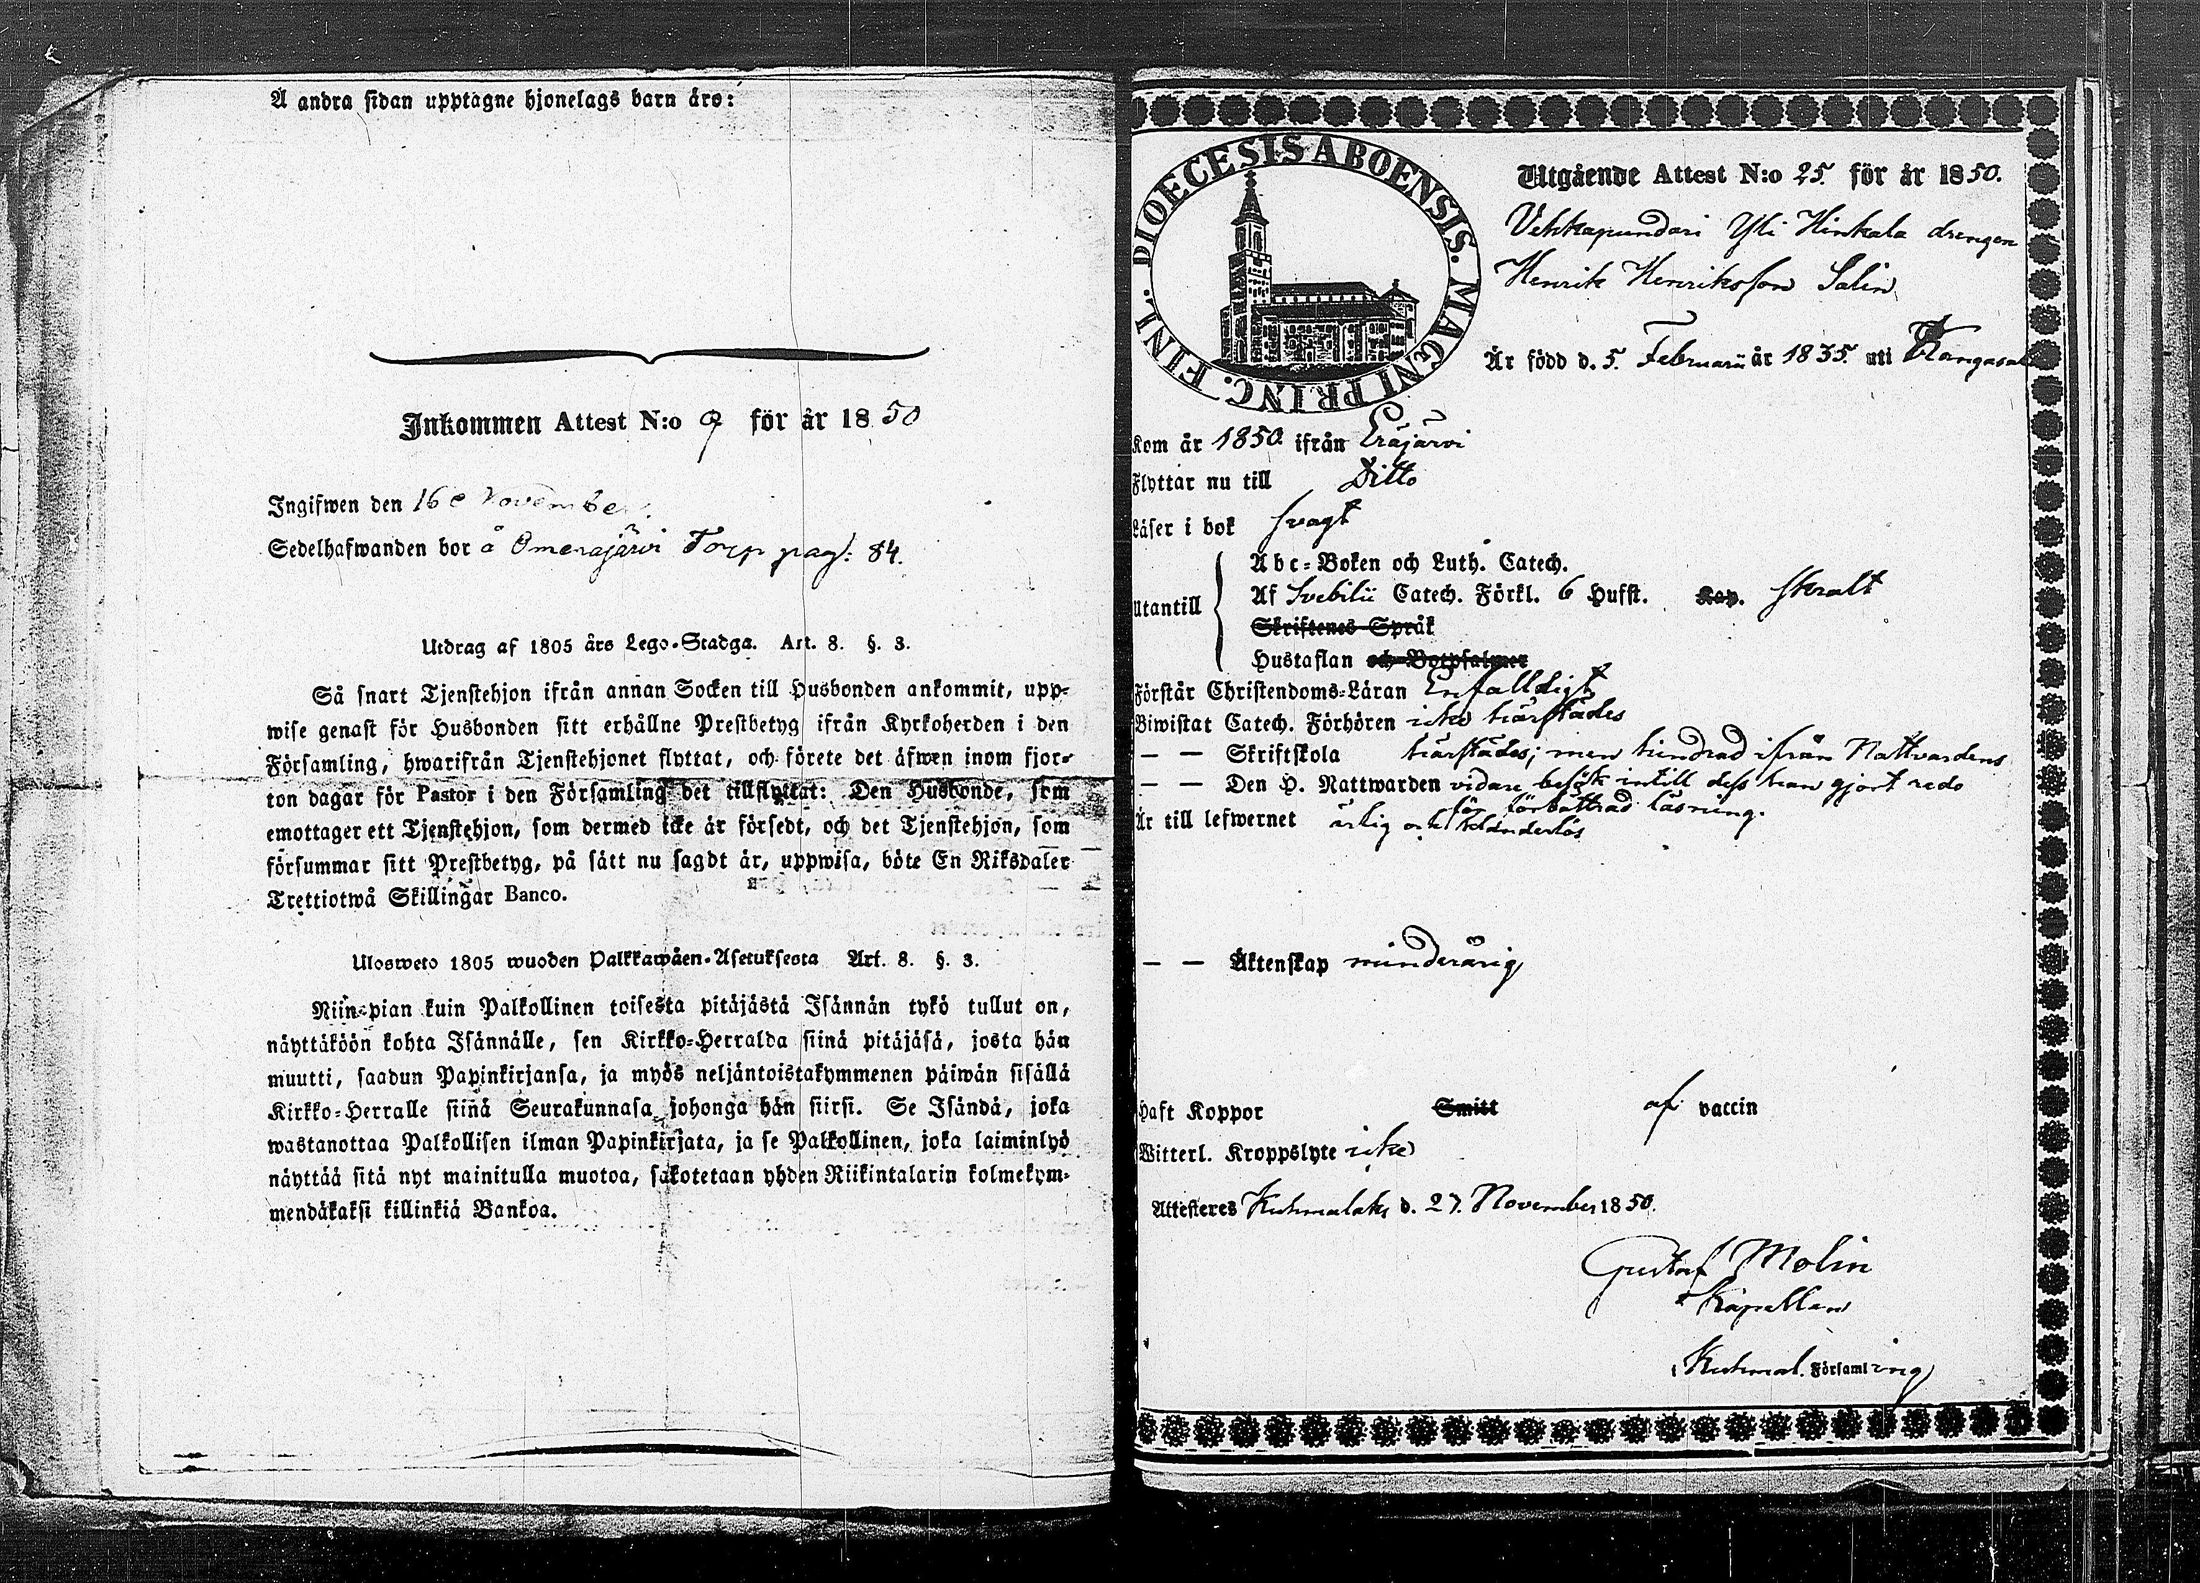 Å andra sidan upptagne hjonelags barn äro:
Inkommen Attest N:o 9 för år 1850
Ingifwen den 16 November.
Sedelhafwanden bor å Omenajärvi Torp pag: 84.
Utdrag af 1805 års Lego-Stadga. Art. 8. §. 3.
Så snart Tjenstehjon ifrån annan Socken till Husbonden ankommit, upp-
wise genast för Husbonden sitt erhållne Prestbetyg ifrån Kyrkoherden i den
Församling, hwarifrån Tjenstehjonet flyttat, och förete det äfwen inom fjor-
ton dagar för Pastor i den Församling det tillflyttat: Den Husbonde, som
emottager ett Tjenstehjon, som dermed icke är försedt, och det Tjenstehjon, som
försummar sitt Prestbetyg, på sätt nu sagdt är, uppwisa, böte En Riksdaler
Trettiotwå Skillingar Banco.
Ulosweto 1805 wuoden Palkkawäen-Asetuksesta Art. 8. §. 3.
Niin-pian kuin Palkollinen toisesta pitäjästä Isännän tykö tullut on,
näyttäköön kohta Isännälle, sen Kirkko-Herralda siinä pitäjäsä, josta hän
muutti, saadun Papinkirjansa, ja myös neljäntoistakymmenen päiwän sisällä
Kirkko-Herralle siinä Seurakunnasa johonga hän siirsi. Se Isändä, joka
wastanottaa Palkollisen ilman Papinkirjata, ja se Palkollinen, joka laiminlyö
näyttää sitä nyt mainitulla muotoa, sakotetaan yhden Riikintalarin kolmekym-
mendäkaksi killinkiä Bankoa.
DIOECESIS ABOENSIS. MAGNI PRINC. FINL.
Utgående Attest N:o 25. för år 1850.
Vehkapundari Yli Hinkala drengen
Henrik Henriksson Salin
Är född d. 5. Februarii år 1835. uti Kangasala
Kom år 1850. ifrån Eräjärvi
Flyttar nu till Ditto
Läser i bok svagt
Utantill
Abc-Boken och Luth. Catech.
Af Svebilii Catech. Förkl. 6 Hufst. Kap. skralt
Skriftenes Språk
Hustaflan och Botpsalmer
Förstår Christendoms-Läran Enfalldigt
Biwistat Catech. Förhören icke härstädes
— — Skriftskola härstädes; men hindrad ifrån Nattvardens
— — Den H. Nattwarden vidare besök intill dess han gjort redo
för förbättrad läsning.
Är till lefwernet ärlig och klanderlös
— — Äktenskap minderårig
Haft Koppor Smitt af vaccin
Witterl. Kroppslyte icke
Attesteres Kuhmalaks d. 27. November 1850.
Gustaf Molin
Kapellan
i Kuhmal. Församling